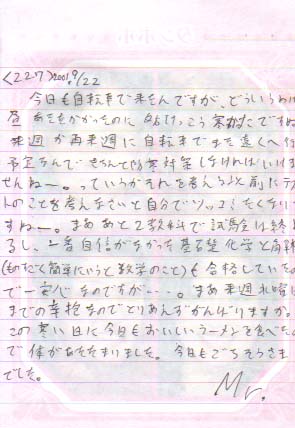 <227> 2001.9/22
今日も自転車で来たんですが、どういうわけ
昼あせをかかったのに 夕方けっこう寒かたですね
来週か再来週に自転車でまた遠くへ行
予定なんできちんと防寒対策しなければいけま
せんねー。っていうかそれを考えるより前にテス
トのことを考えなさいと自分でツッコミたくない
すねー。まああと2教科で試験は終
るし、一番自信がなかった基礎化学と解
(ものすごく簡単にいうと数学のこと)も合格していたの
で一安心なのですが…。まあ来週水曜日
までの辛抱なのでとりあえずがんばりますか。
この寒い日に今日もおいしいラーメンを食べたの
で体があたたまりました。今日もごちそうさま
でした。
Mr.